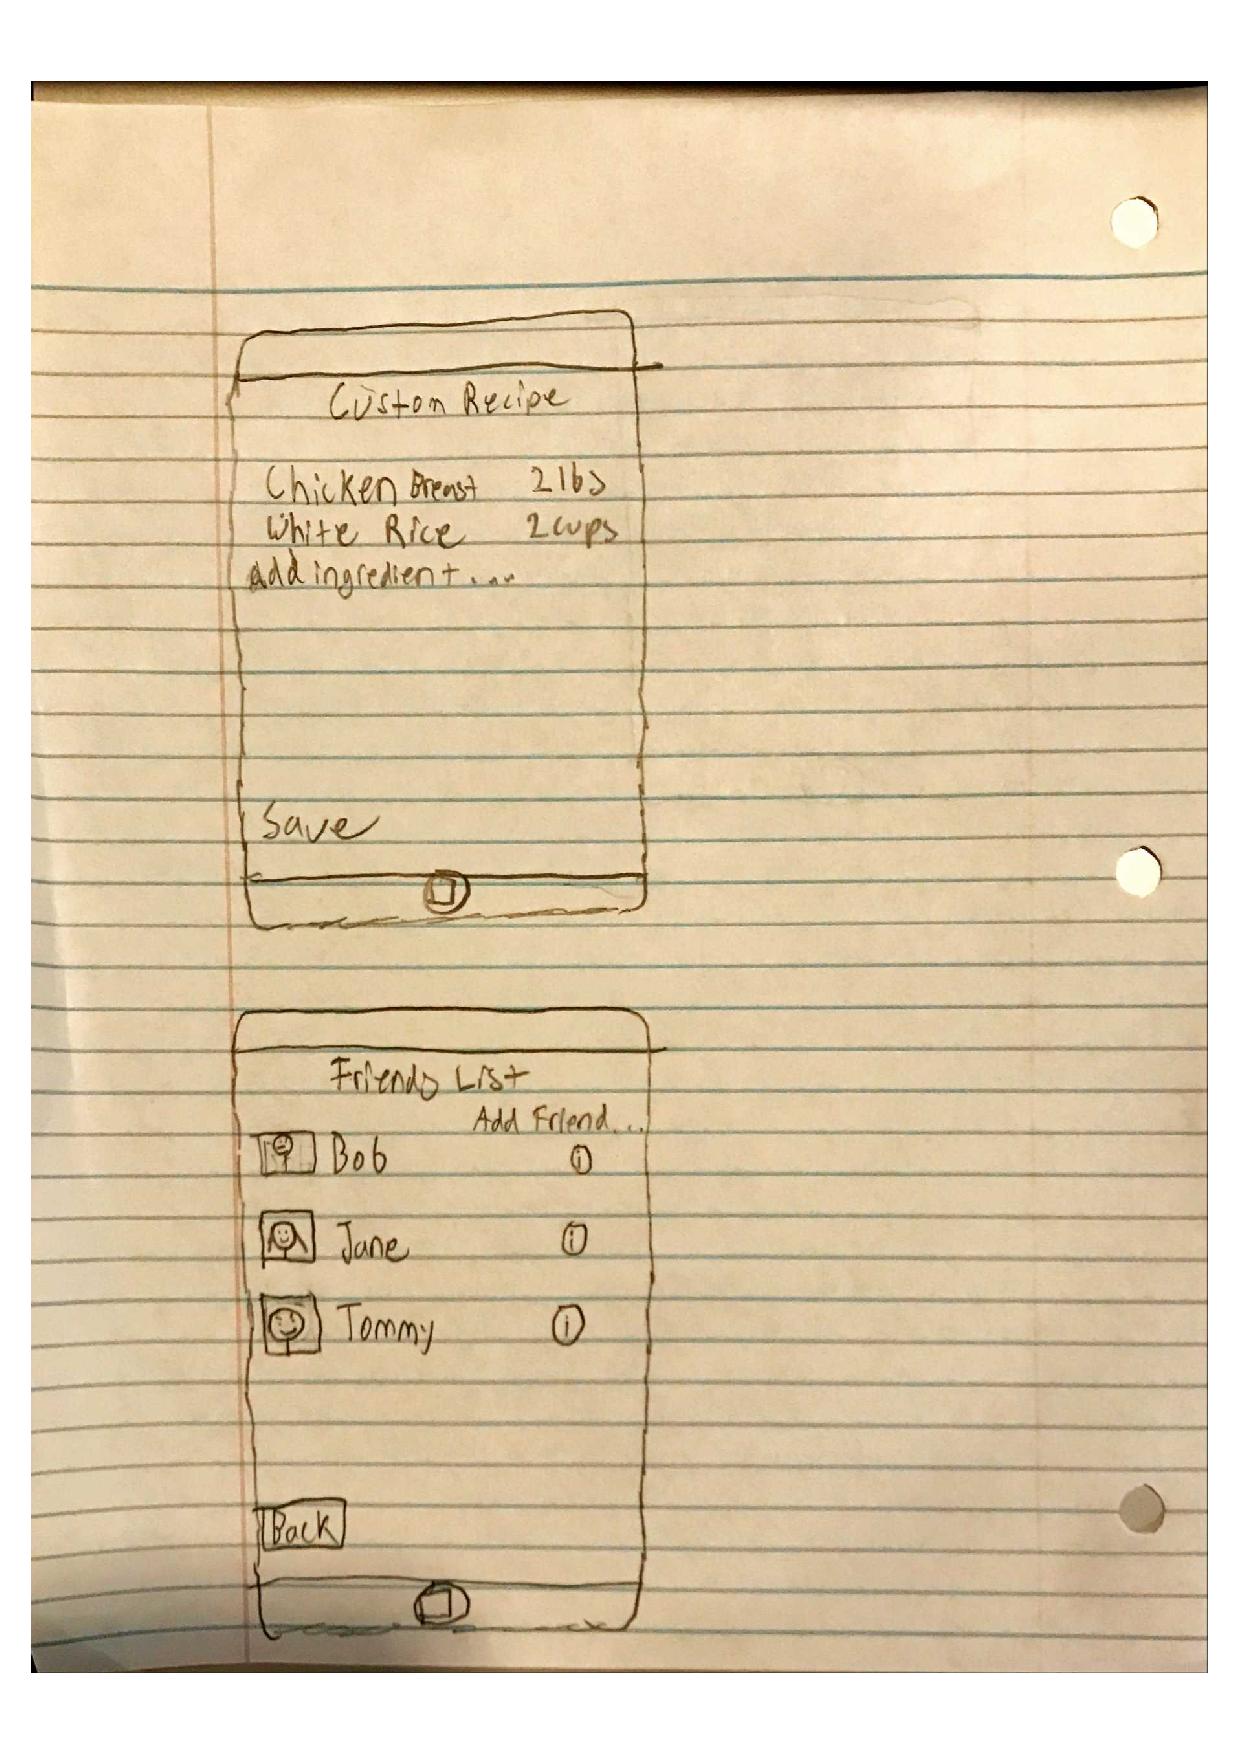 Custom Recipe
Chicken Breast 2 lbs
White Rice 2 cups
Add ingredient....
Save
Friends List
Add Friend...
Bob i
Jane i
Tommy i
Back